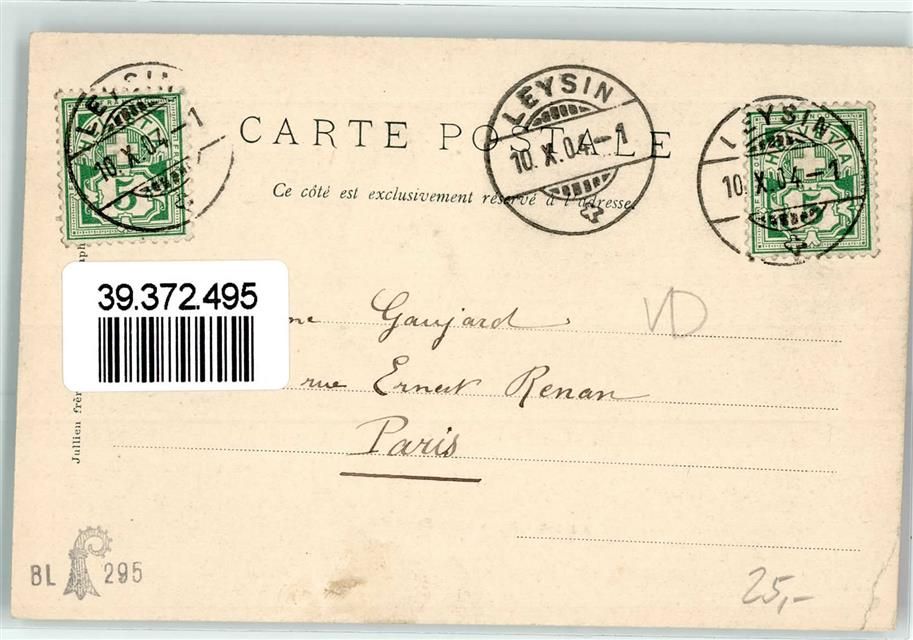 LEYSIN
10.X.04.-1
HELVETIA
5
CARTE POSTALE
LEYSIN
10.X.04.-1
LEYSIN
10.X.04.-1
HELVETIA
5
Ce côté est exclusivement réservé à l'adresse.
39.372.495
me Gaujard
VD
rue Ernest Renan
Paris
Jullien frèr
BL 295
25,-